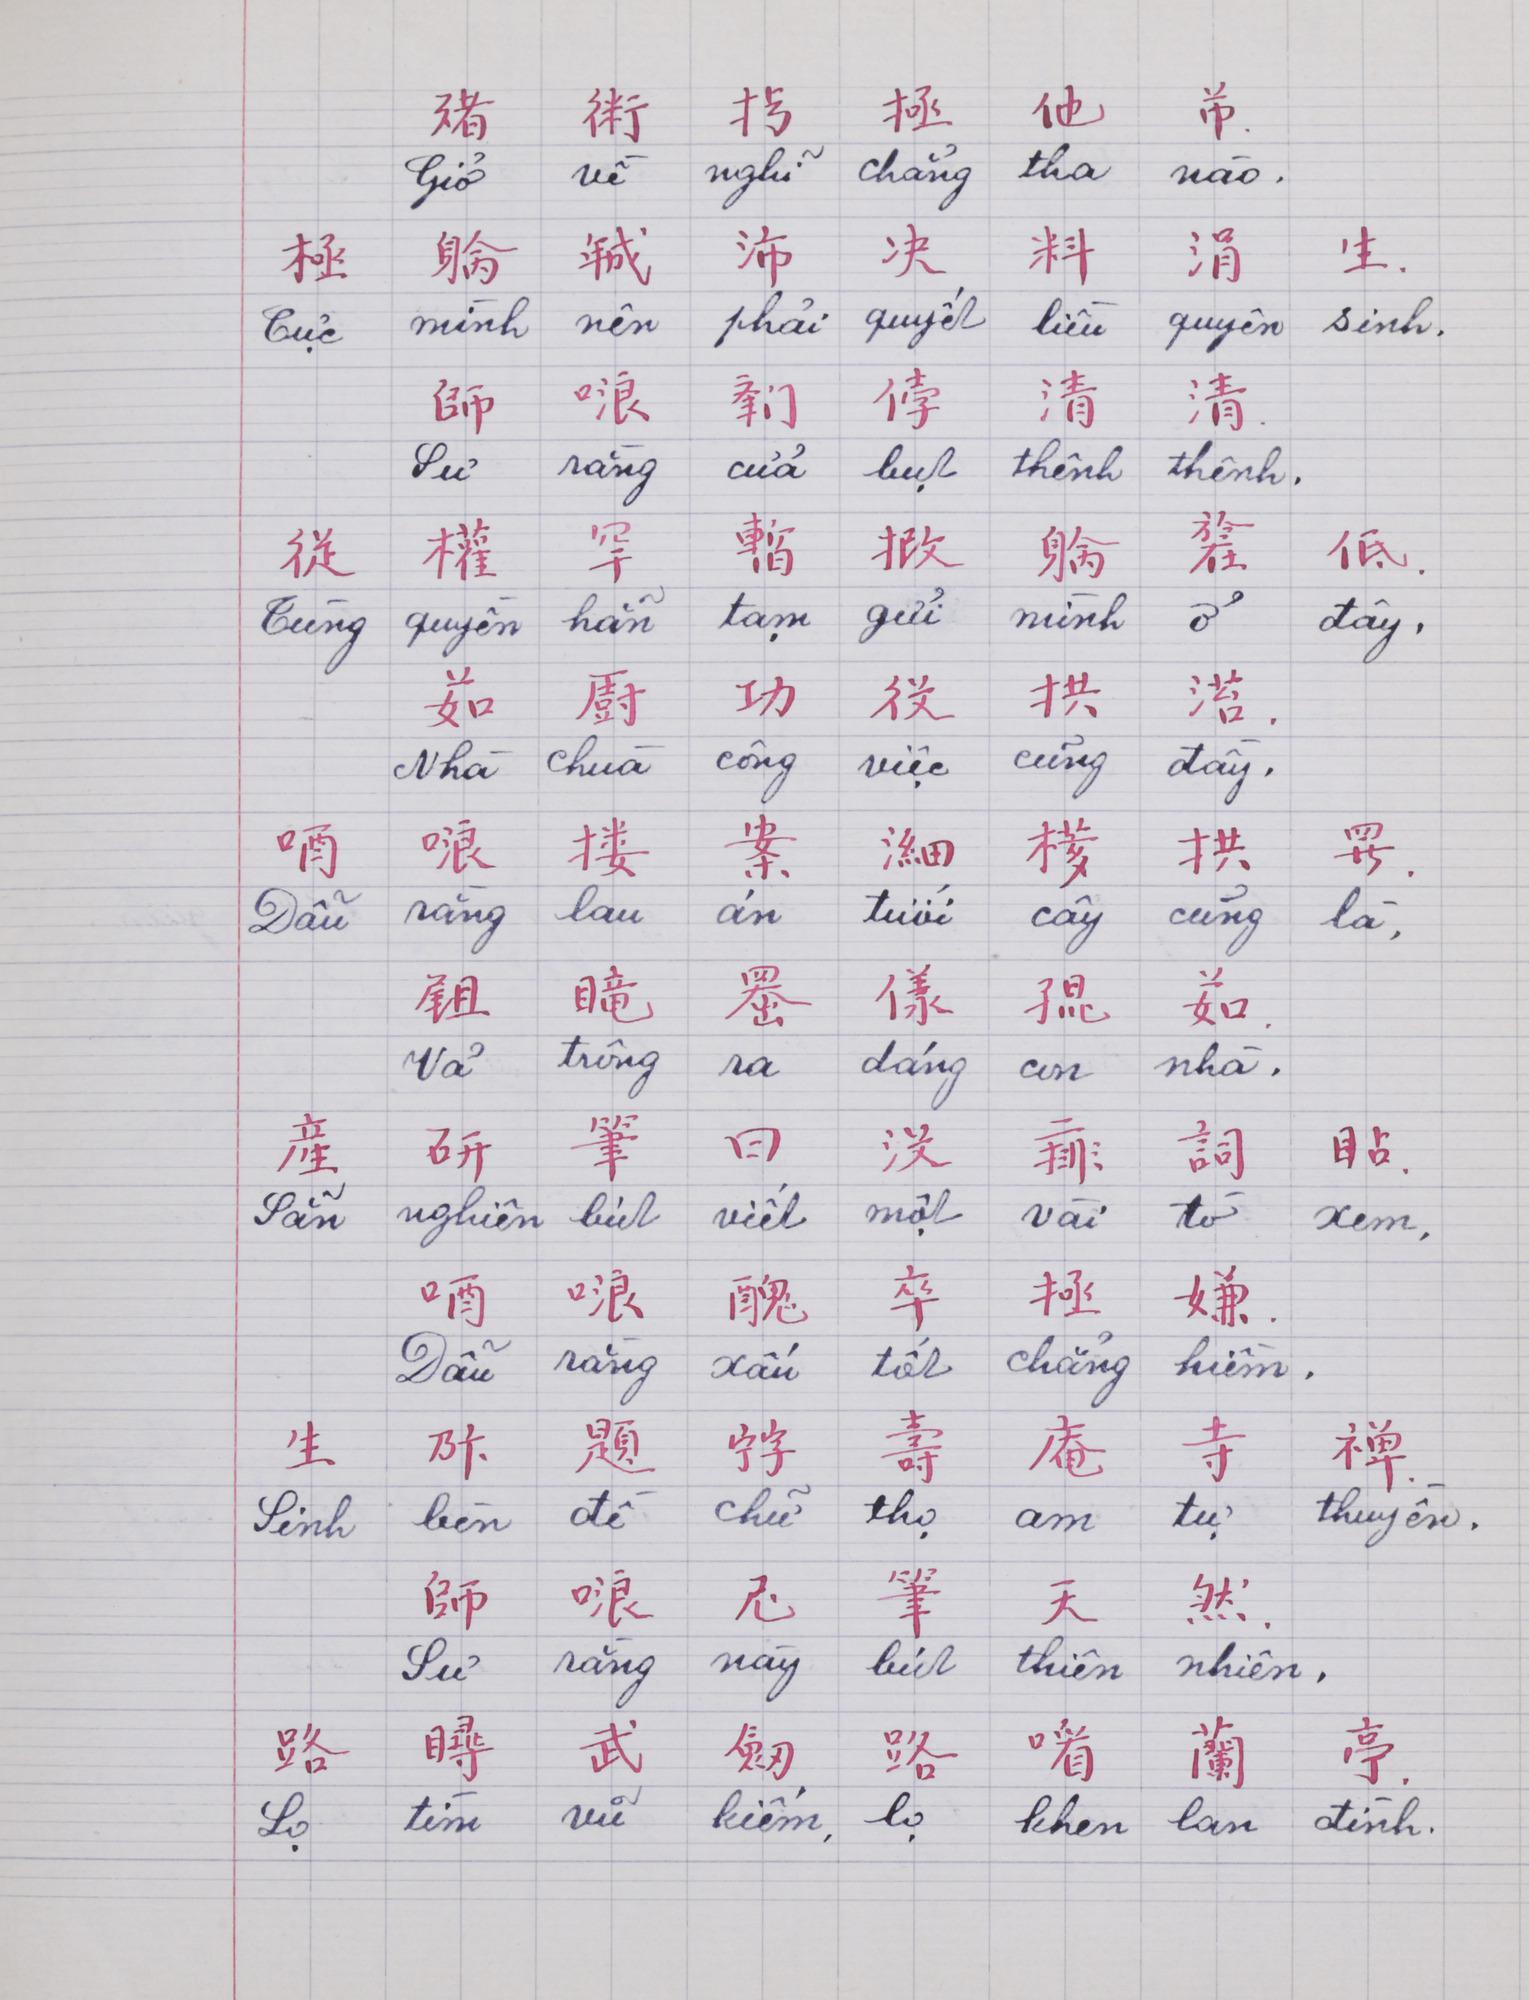 術 极 他 㭁.
Giở về nghĩ chẳng tha nào.
極 𨉟 𢧚 沛 决 料 涓 生.
Cực mình nên phải quyết liều quyên sinh.
師 哴 𨷯 侼 清 清.
Sư rằng cửa bụt thênh thênh.
從 權 罕 暫 𨉟 低.
Tùng quyền hẵn tạm gửi mình ở đây,
茹 厨 功 役 拱 渃.
Nhà chùa công việc cũng đầy.
哴 搂 案 細 拱 罗.
Dẫu rằng lau án tưới cây cũng là,
𥊚 𦋦 儀 𡥵 茹.
Vả trông ra dáng con nhà.
產 研 筆 曰 没 詞 𥄮.
Sẵn nghiên bút viết một vài tờ xem,
哴 醜 卒 極 嫌.
Dẫu rằng xấu tốt chẳng hiềm.
生 題 𡨸 壽 庵 寺 禅.
Sinh bèn đề chữ thọ am tự thuyền.
師 哴 尼 筆 天 然.
Sư rằng này bút thiên nhiên.
路 𥊘 武 劔 路 㗂 蘭 亭.
Lọ tìm vũ kiếm, lọ khen lan đình.